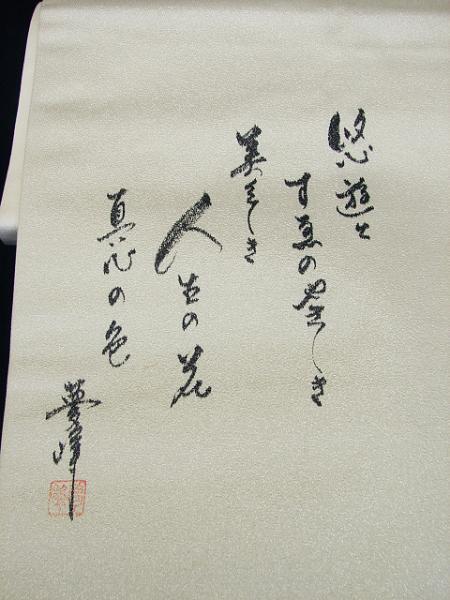 悠遊と
すゑの しき
美しき
人生の花
真心の色
夢峰